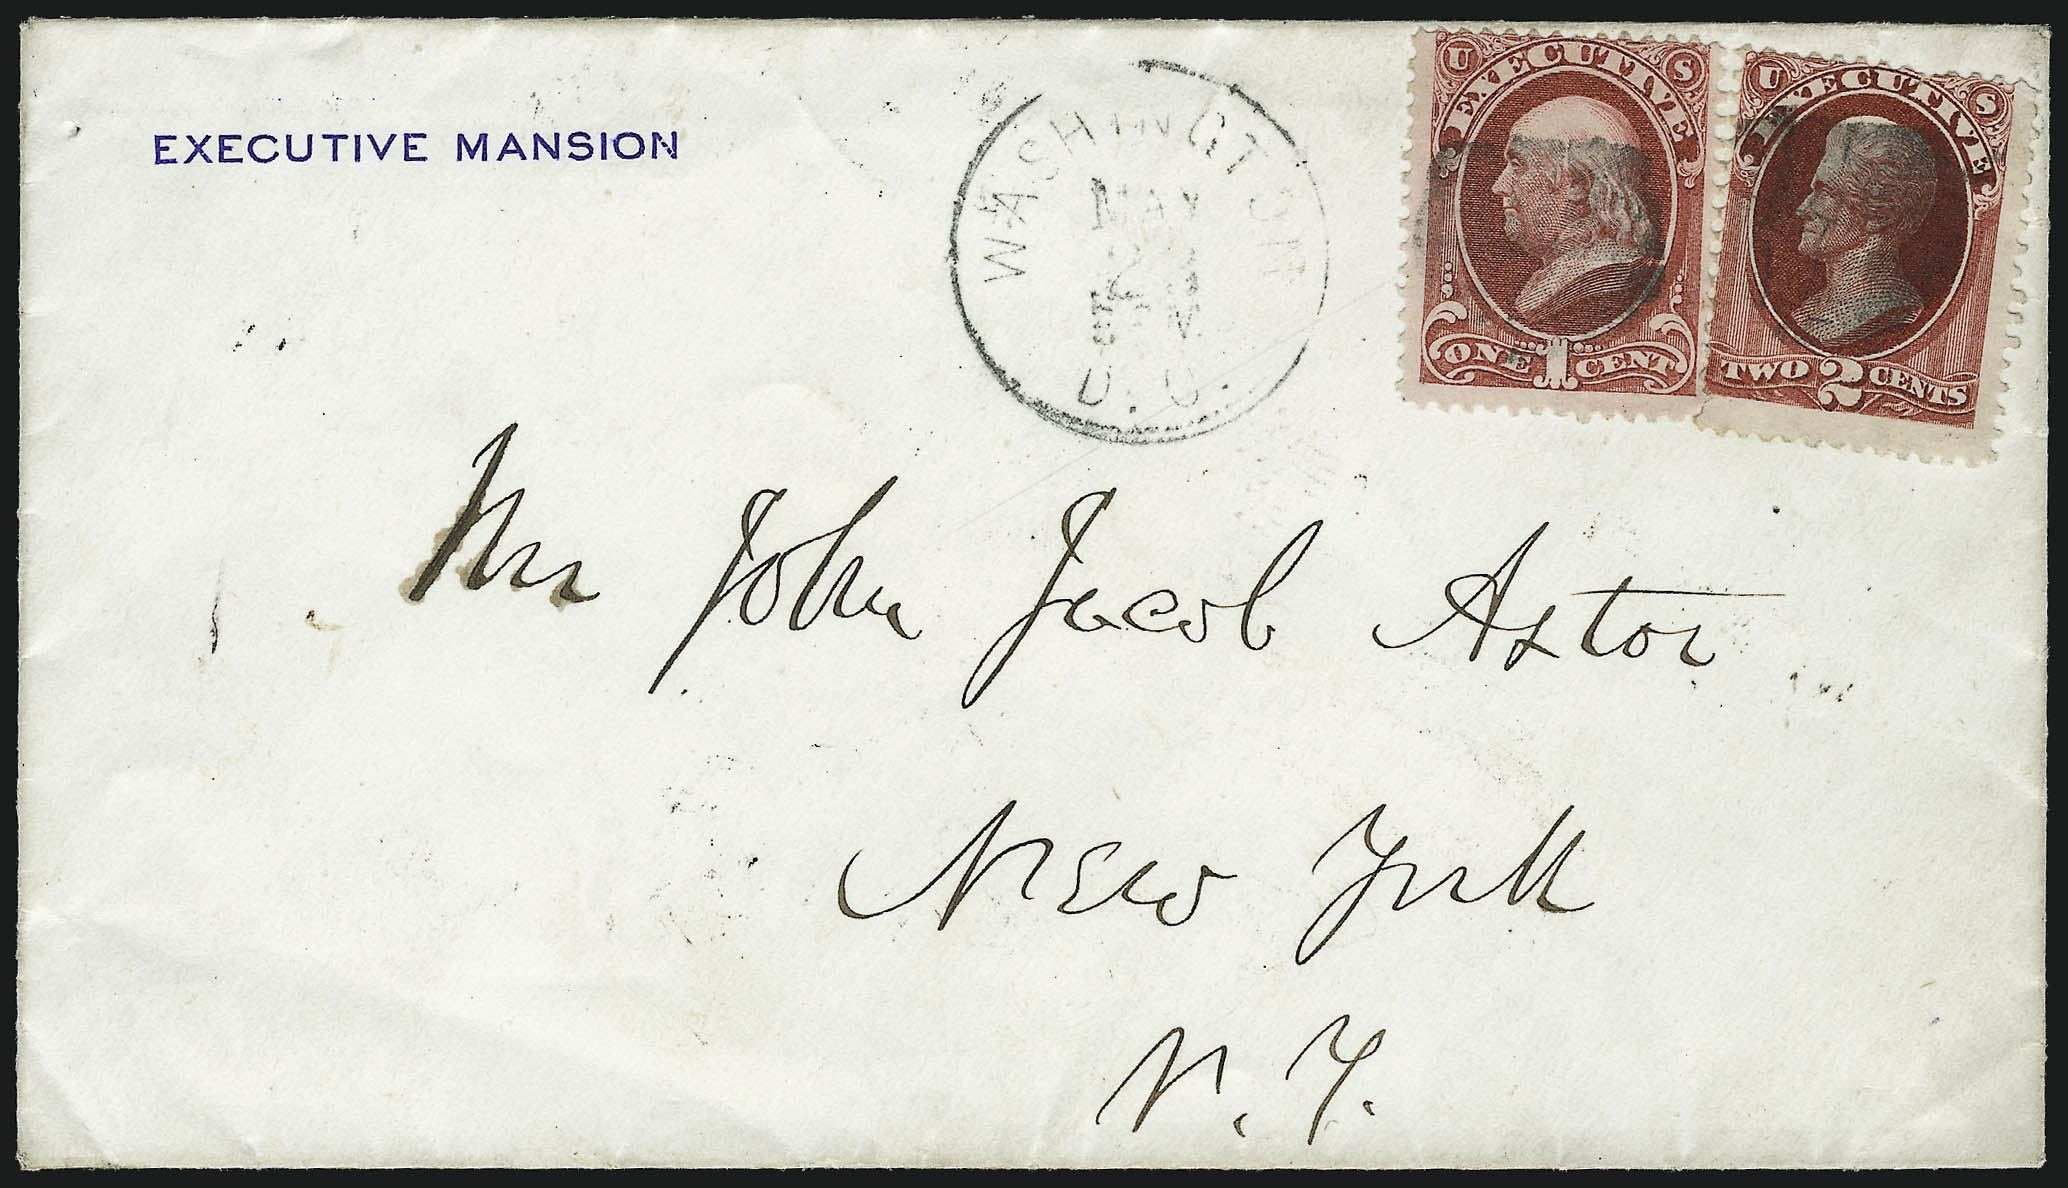 EXECUTIVE MANSION
WASHINGTON
MAY
D. C.
U S
EXECUTIVE
ONE 1 CENT
U S
EXECUTIVE
TWO 2 CENTS
Mr John Jacob Astor
New York
N. Y.